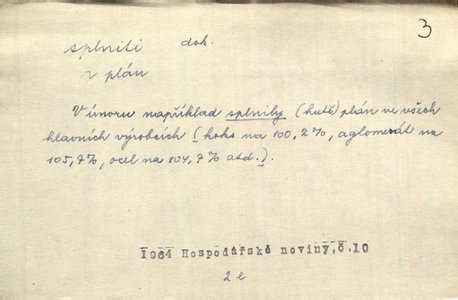 3
splniti dok.
~ plán
V únoru například splnily (hutě) plán ve všech
hlavních výrobcích (koks na 100,2%, aglomerát na
105,7%, ocel na 104,7% atd.).
1964 Hospodářské noviny,č.10
2e